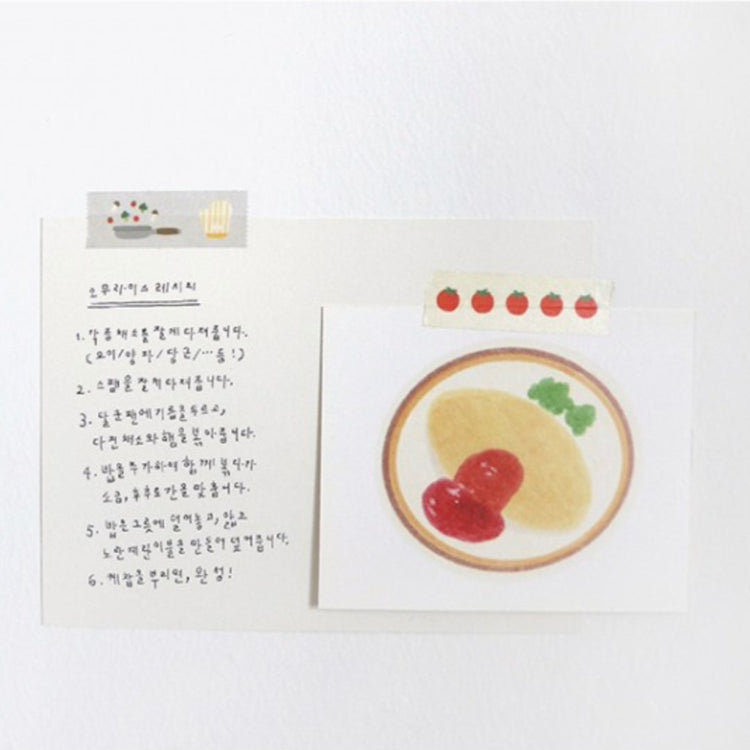 오무라이스 레시피
1. 각종 채소를 잘게 다져줍니다.
(오이/양파/당근/… 등!)
2. 스팸을 잘게 다져줍니다.
3. 달군팬에 기름을 두르고,
다진 채소와 햄을 볶아줍니다.
4. 밥을 추가하여 함께 볶다가
소금, 후추로 간을 맞춥니다.
5. 밥은 그릇에 덜어놓고, 얇고
노란 계란이불을 만들어 덮어줍니다.
6. 케찹을 뿌리면, 완성!